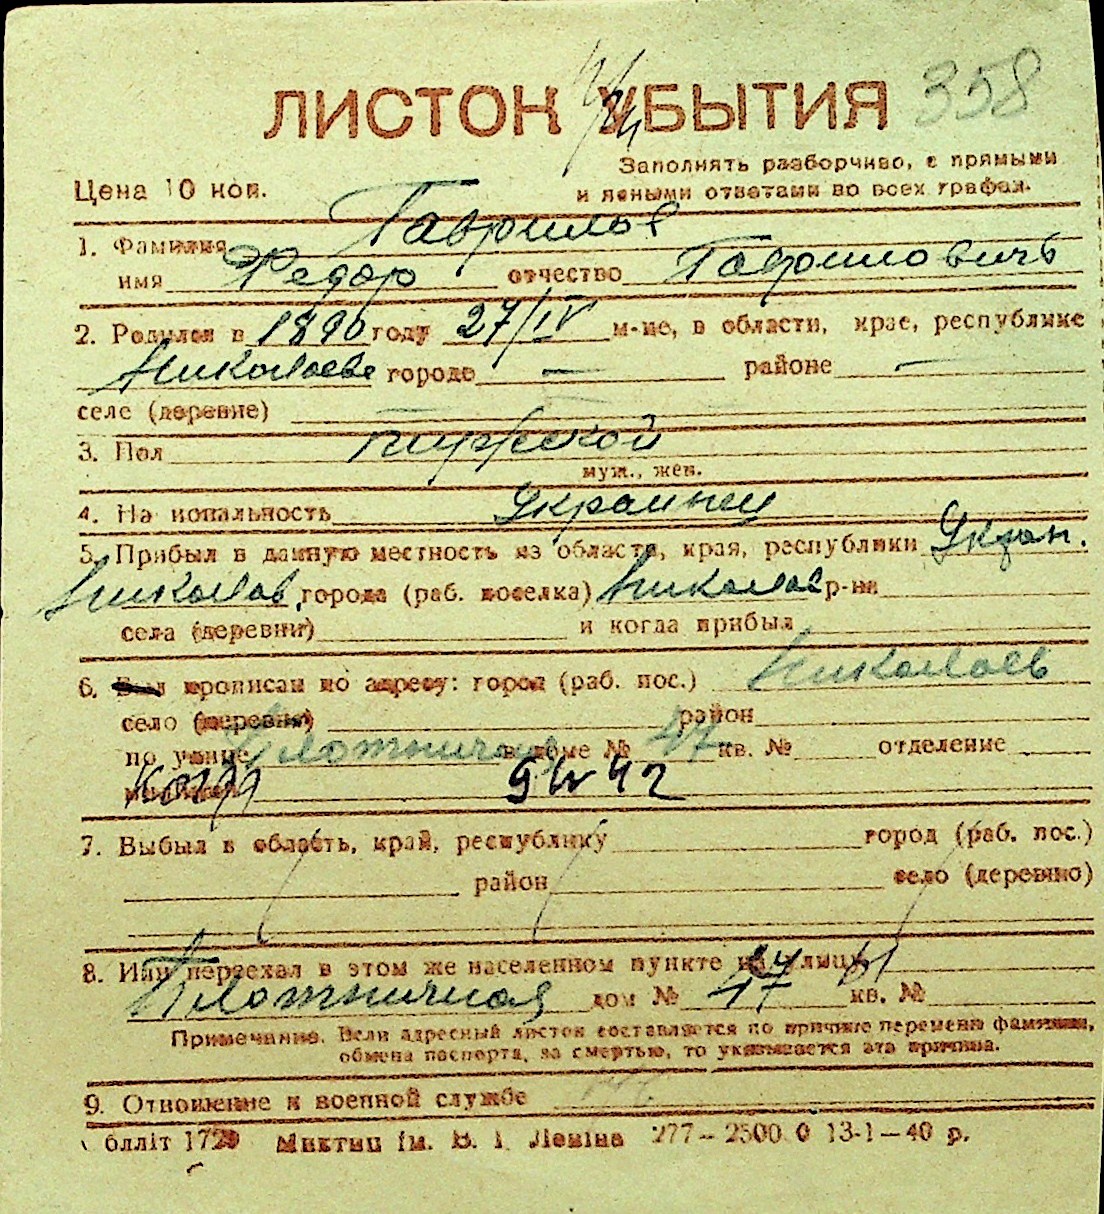 358
ЛИСТОК УБЫТИЯ
Заполнять разборчиво, с прямыми
Цена 10 коп. и ясными ответами во всех графах.
1. Фамилия Гаврилов
имя Федор отчество Гаврилович
2. Родился в 1890 году 27/IV м-це, в области, крае, республике
Николаеве городе — районе —
селе (деревне) —
3. Пол мужской
муж., жен.
4. Национальность Украинец
5. Прибыл в данную местность из области, края, республики Укран.
Николаев, города (раб. поселка) Николаев р-на
села (деревни) и когда прибыл
6. Был прописан по адресу: город (раб. пос.) Николаев
село (деревня) район
по улице Плотничная в доме № 47 кв. № отделение
милиции Когда
7. Выбыл в область, край, республику город (раб. пос.)
район село (деревню)
8. Или переехал в этом же населенном пункте на улицу
Плотничная дом № 47 кв. №
Примечание. Если адресный листок составляется по причине перемены фамилии,
обмена паспорта, за смертью, то указывается эта причина.
9. Отношение к военной службе
блліт 1729 Миктип ім. В. І. Леніна 277—2500 0 13-1—40 р.